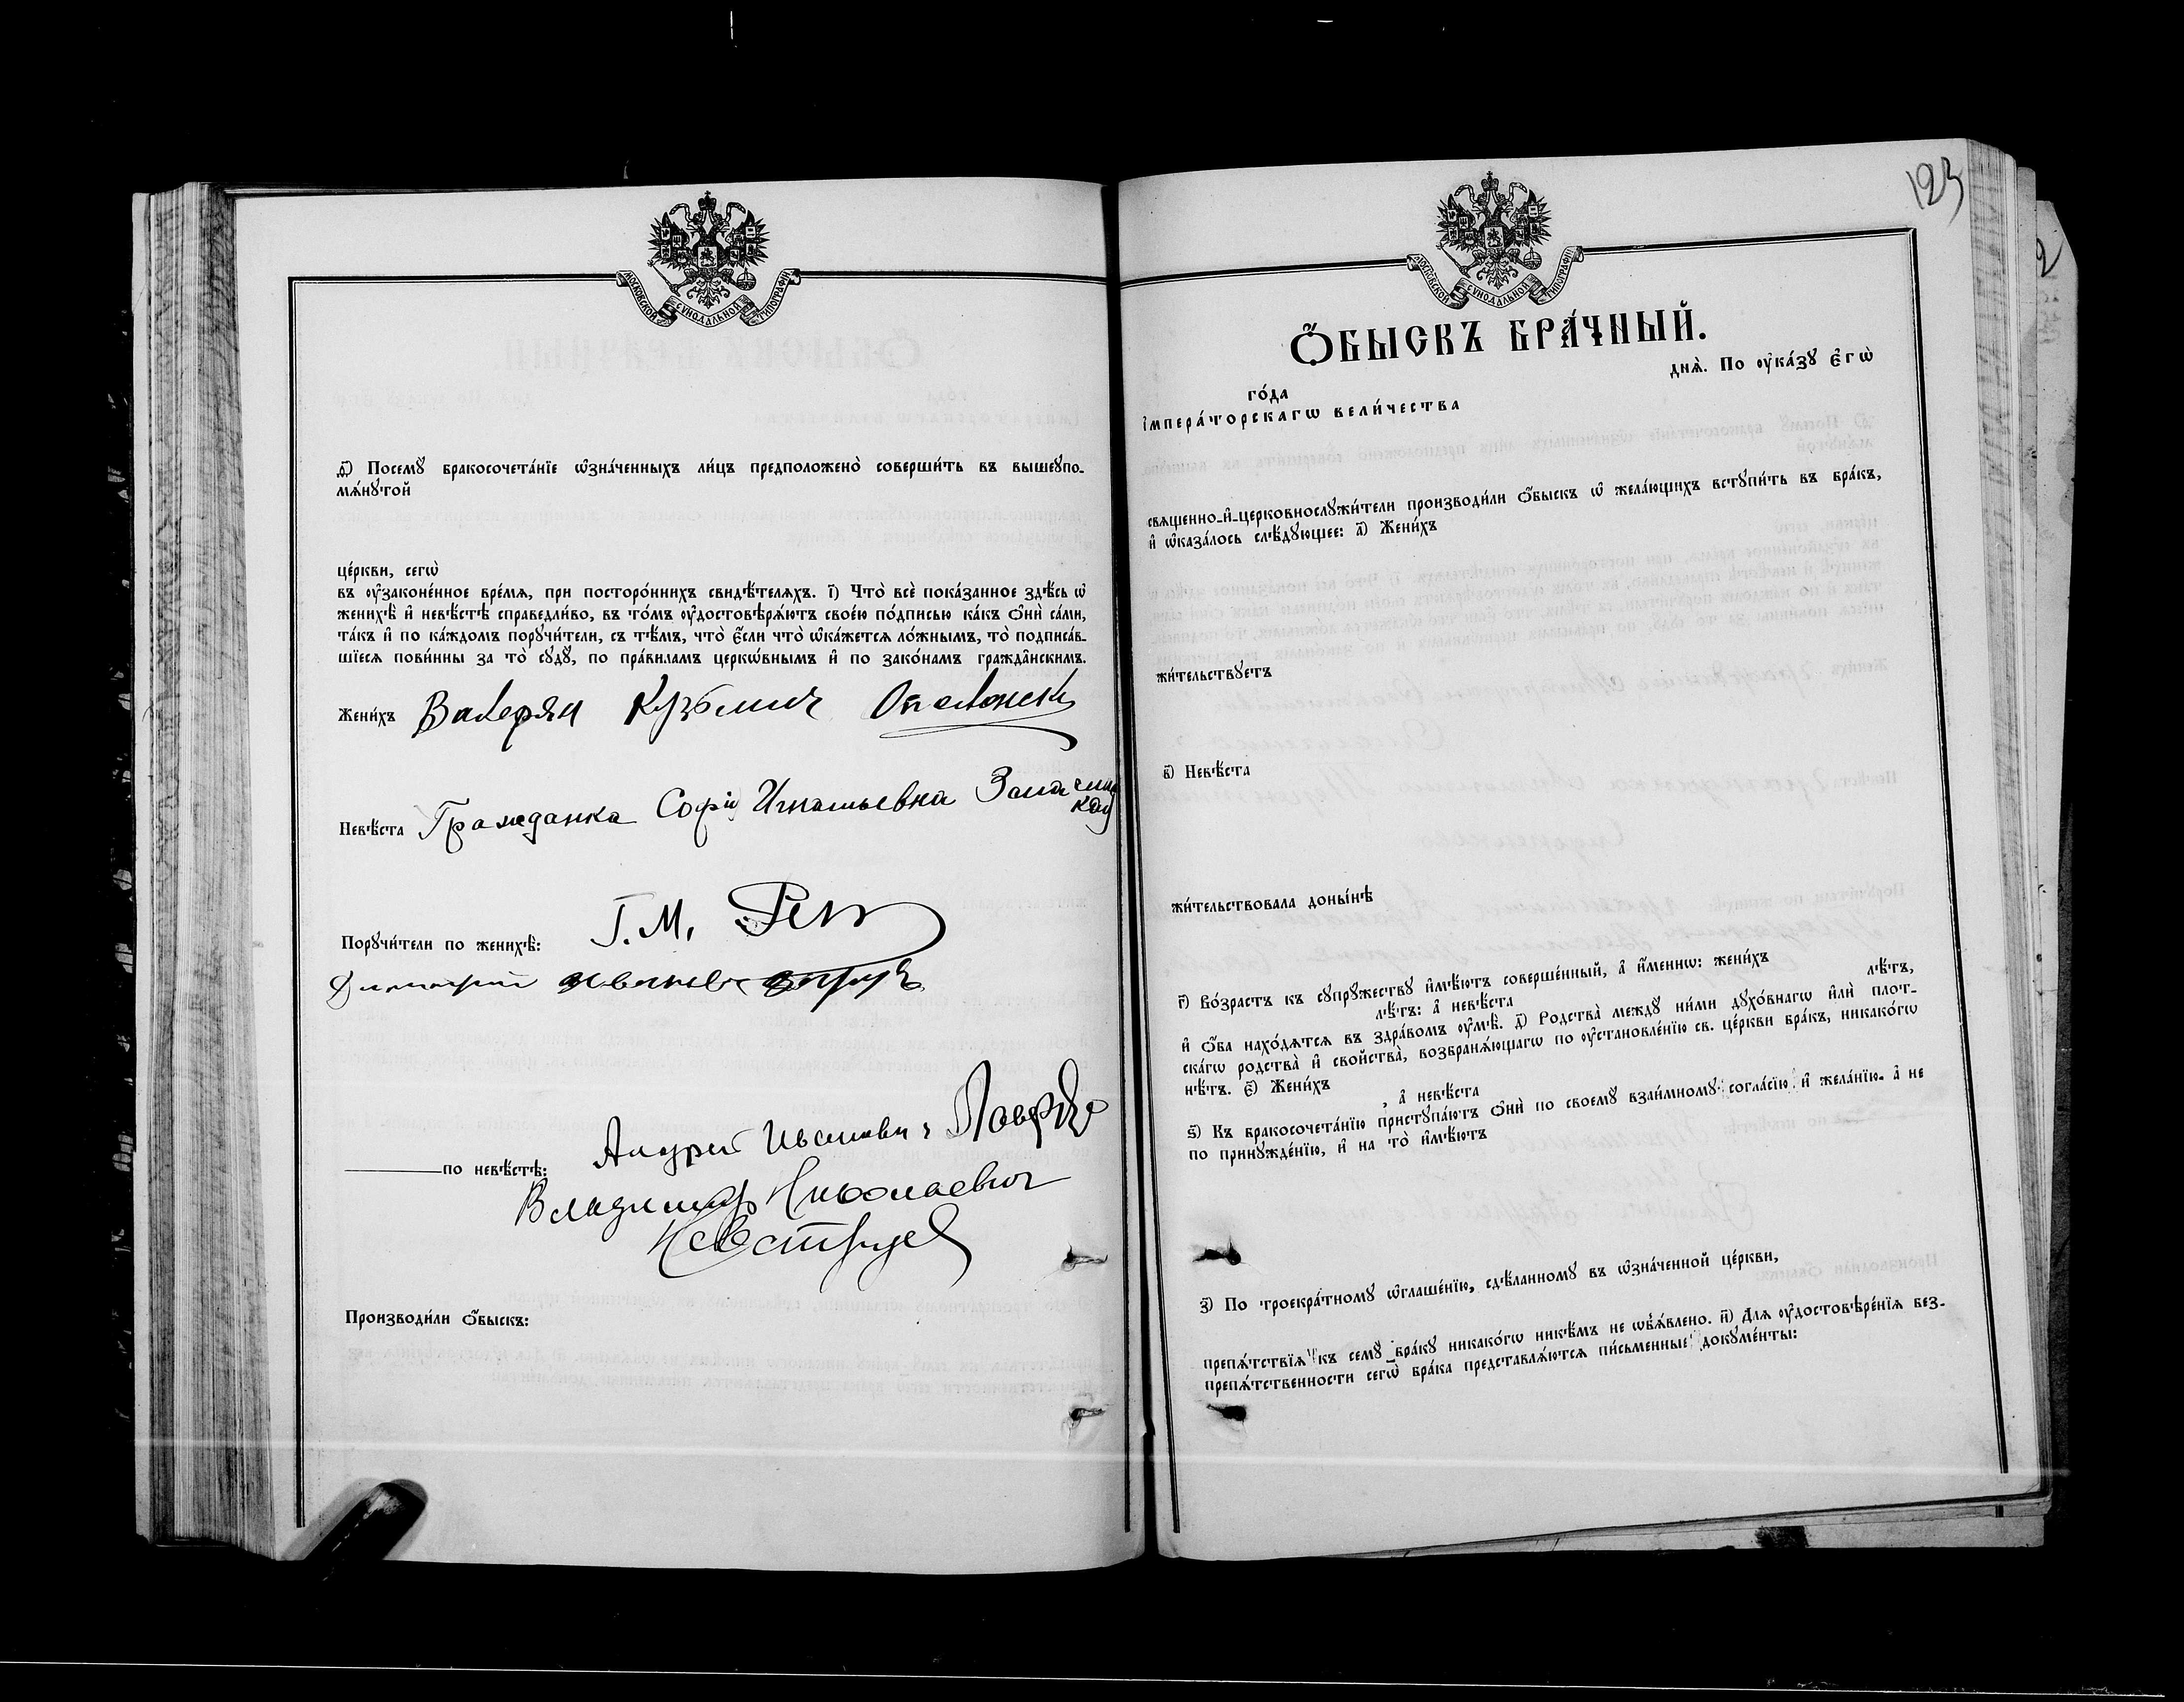 МОСКОВСКОЙ СУНОДАЛЬНОЙ ТИПОГРАФІИ
ѳ҃) Посемꙋ̀ бракосочета́нїе ѡ҆зна́ченныхъ ли́цъ предположено̀ соверши́ть въ вышеꙋпо-
мѧ́нꙋтой
це́ркви, сегѡ̀
въ ᲂу҆зако́не́нное вре́мѧ, при посторо́ннихъ свидѣ́телѧхъ. і҃) Что̀ всѐ пока́занное здѣ́сь ѡ҆
женихѣ̀ и҆ невѣ́стѣ справедли́во, въ то́мъ ᲂу҆достовѣрѧ́ютъ свое́ю по́дписью ка́къ ѻ҆нѝ са́ми,
та́къ и҆ по ка́ждомъ порꙋчи́тели, съ тѣ́мъ, что̀ є҆́сли что̀ ѡ҆ка́жется ло́жнымъ, то̀ подписа́в-
шїесѧ пови́нны за то̀ сꙋдꙋ̀, по пра́виламъ церкѡ́внымъ и҆ по зако́намъ гражда̂нскимъ.
Жени́хъ Валерян Кузьмич
Невѣ́ста Гражданка Софія Игнатьевна
Порꙋчи́тели по женихѣ̀: Г. М.
по невѣ́стѣ: Андрей Иванович
Владимир Николаевич
Невструев
Производи́ли ѻ҆́быскъ:
123
МОСКОВСКОЙ СУНОДАЛЬНОЙ ТИПОГРАФІИ
Ѻ҆́БЫСКЪ БРА́ЧНЫЙ.
го́да
днѧ̀. По ᲂу҆ка́зꙋ є҆гѡ̀
і҆мпера́торскагѡ вели́чества
свѧщенно-и҆-церковнослꙋжи́тели производи́ли ѻ҆́быскъ ѡ҆ жела́ющихъ встꙋпи́ть въ бра́къ,
и҆ ѡ҆каза́лось слѣ́дꙋющее: а҃) Жени́хъ
жи́тельствꙋетъ
в҃) Невѣ́ста
жи́тельствовала доны́нѣ
г҃) Во́зрастъ къ сꙋпрꙋ́жествꙋ и҆мѣ́ютъ соверше́нный, а҆ и҆́менно: жени́хъ
лѣ́тъ: а҆ невѣ́ста
лѣ́тъ,
и҆ ѻ҆́ба нахо́дѧтсѧ въ здра́вомъ ᲂу҆мѣ̀. д҃) Родства̀ междꙋ ни́ми дꙋхо́внагѡ и҆лѝ плот-
ска́гѡ родства̀ и҆ свойства̀, возбранѧ́ющагѡ по ᲂу҆становле́нїю св. це́ркви бра́къ, никако́гѡ
нѣ́тъ. є҃) Жени́хъ
, а҆ невѣ́ста
ѕ҃) Къ бракосочета́нїю пристꙋпа́ютъ ѻ҆нѝ по своемꙋ̀ взаи́мномꙋ согла́сїю и҆ жела́нїю. а҆ не
по принꙋжде́нїю, и҆ на то̀ и҆мѣ́ютъ
з҃) По троекра́тномꙋ ѡ҆глаше́нїю, сдѣ́ланномꙋ въ ѡ҆зна́ченной це́ркви,
препѧ́тствїѧ къ семꙋ̀ бра́кꙋ никако́гѡ никѣ́мъ не ѡ҆бъѧ́влено. и҃) Длѧ ᲂу҆достовѣре́нїѧ без-
препѧ́тственности сегѡ̀ бра́ка представлѧ́ютсѧ пи́сьменные докꙋме́нты: